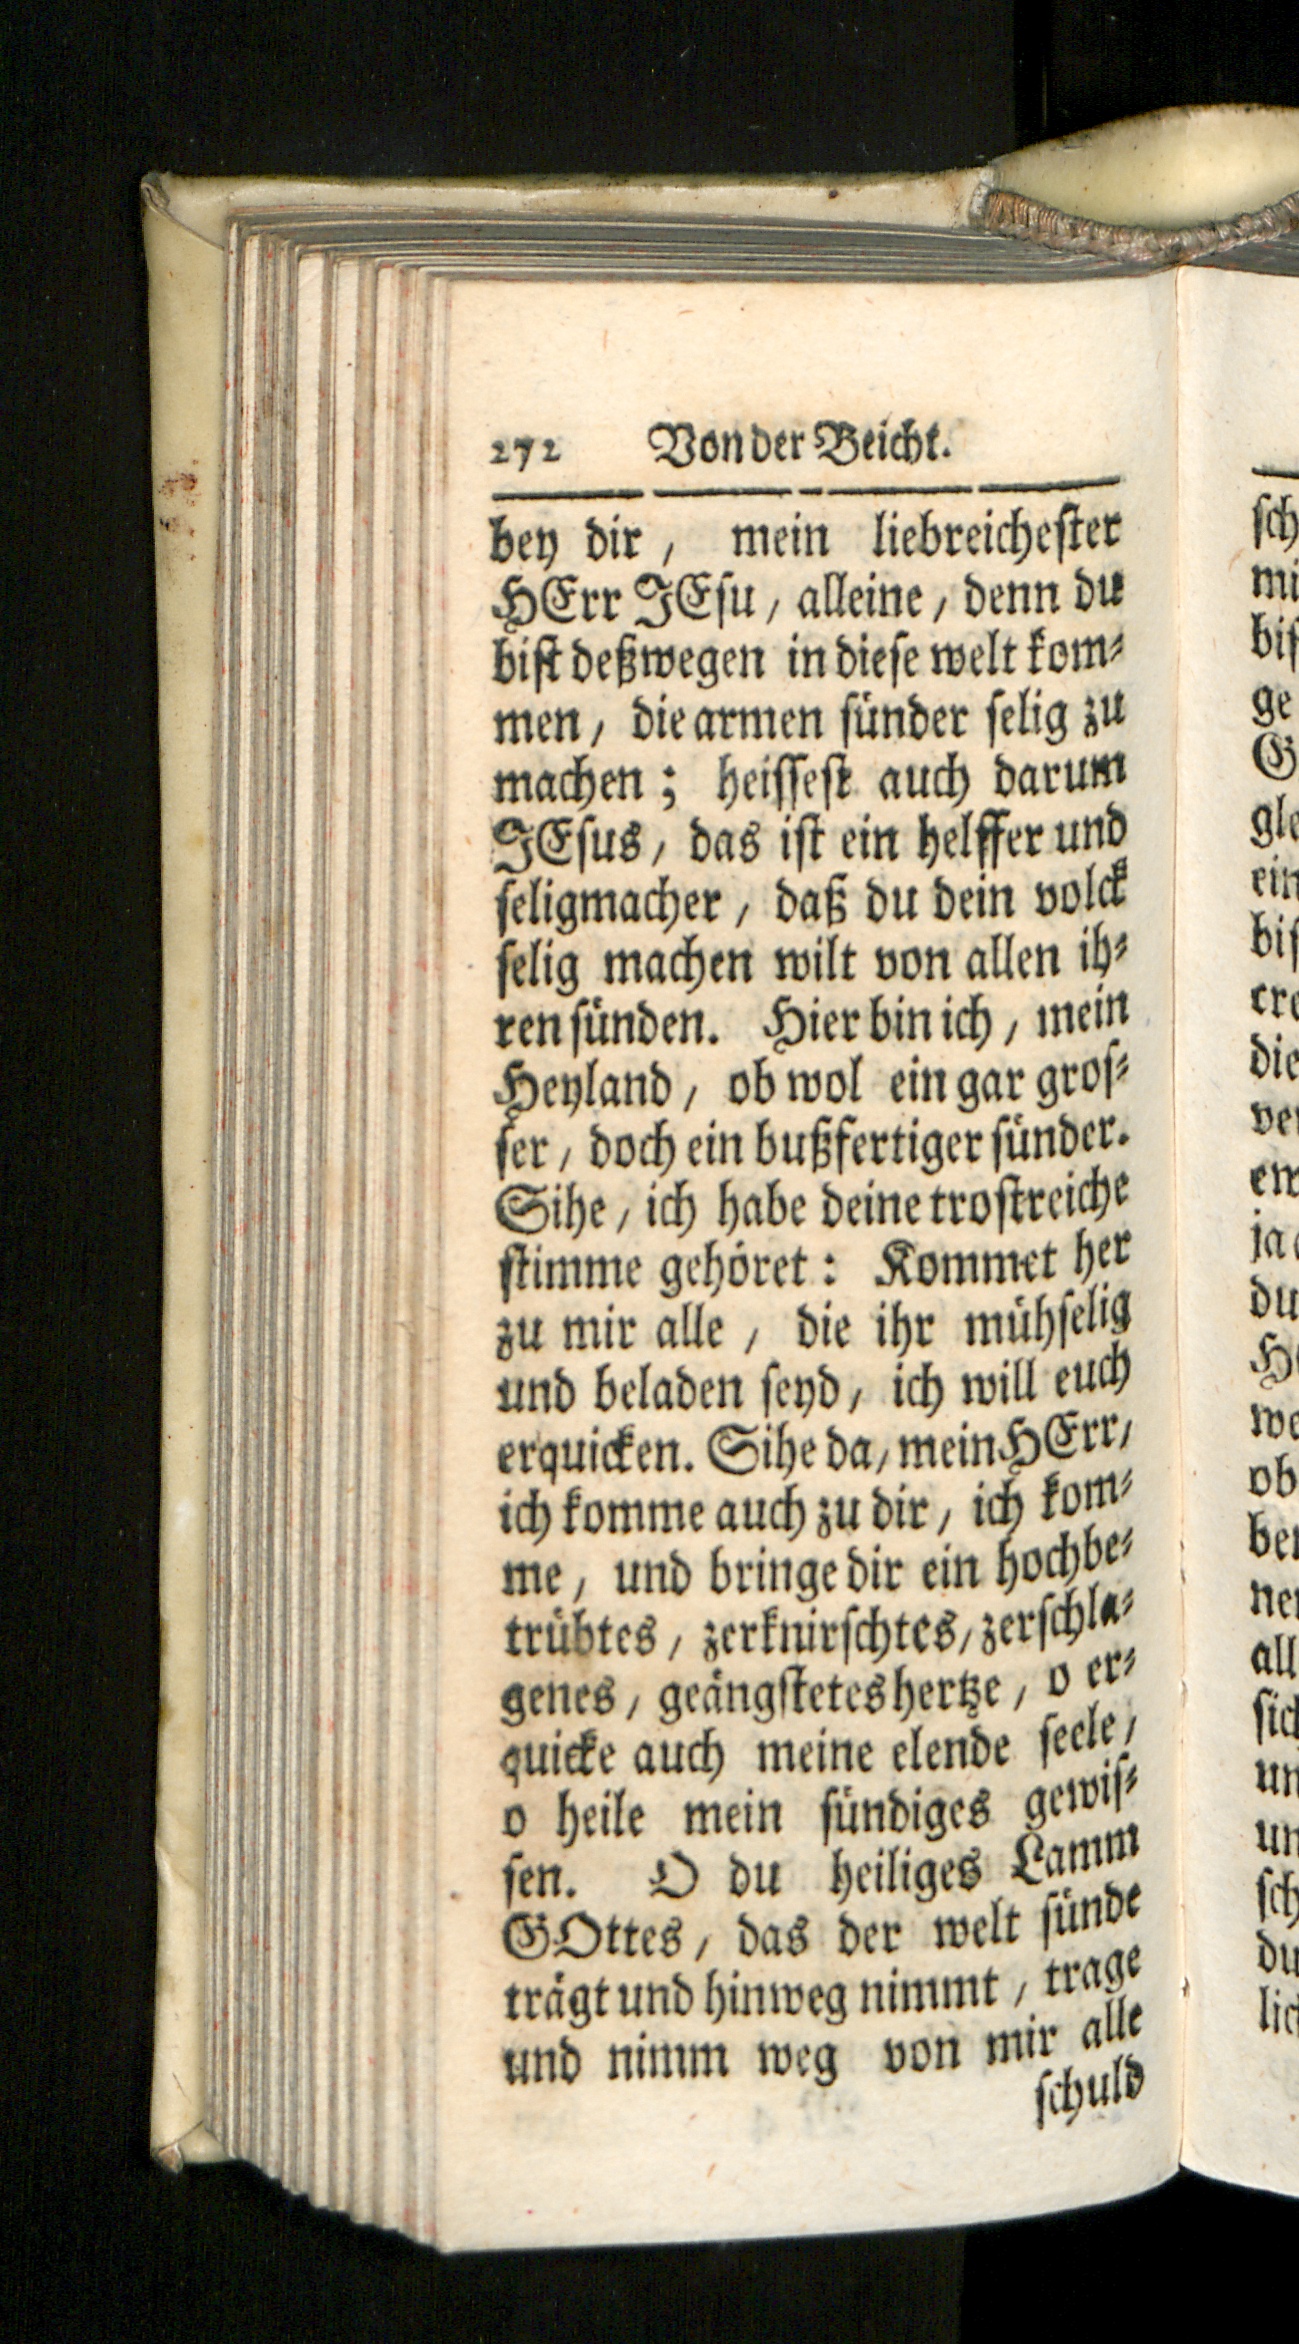 272 Von der Beicht.
bey dir, mein liebreichester
HErr JEsu, alleine, denn du
bist deßwegen in diese welt kom-
men, die armen sünder selig zu
machen; heissest auch darum
JEsus, das ist ein helffer und
seligmacher, daß du dein volck
selig machen wilt von allen ih-
ren sünden. Hier bin ich, mein
Heyland, ob wol ein gar gros-
ser, doch ein bußfertiger sünder.
Sihe, ich habe deine trostreiche
stimme gehöret: Kommet her
zu mir alle, die ihr mühselig
und beladen seyd, ich will euch
erquicken. Sihe da, mein HErr,
ich komme auch zu dir, ich kom-
me, und bringe dir ein hochbe-
trübtes, zerknirschtes, zerschla-
genes, geängstetes hertze, o er-
quicke auch meine elende seele,
o heile mein sündiges gewis-
sen. O du heiliges Lamm
GOttes, das der welt sünde
trägt und hinweg nimmt, trage
und nimm weg von mir alle
schuld